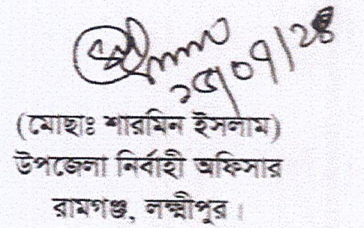 ২৫/০৭/২৪
(মোছাঃ শারমিন ইসলাম)
উপজেলা নির্বাহী অফিসার
রামগঞ্জ, লক্ষ্মীপুর।